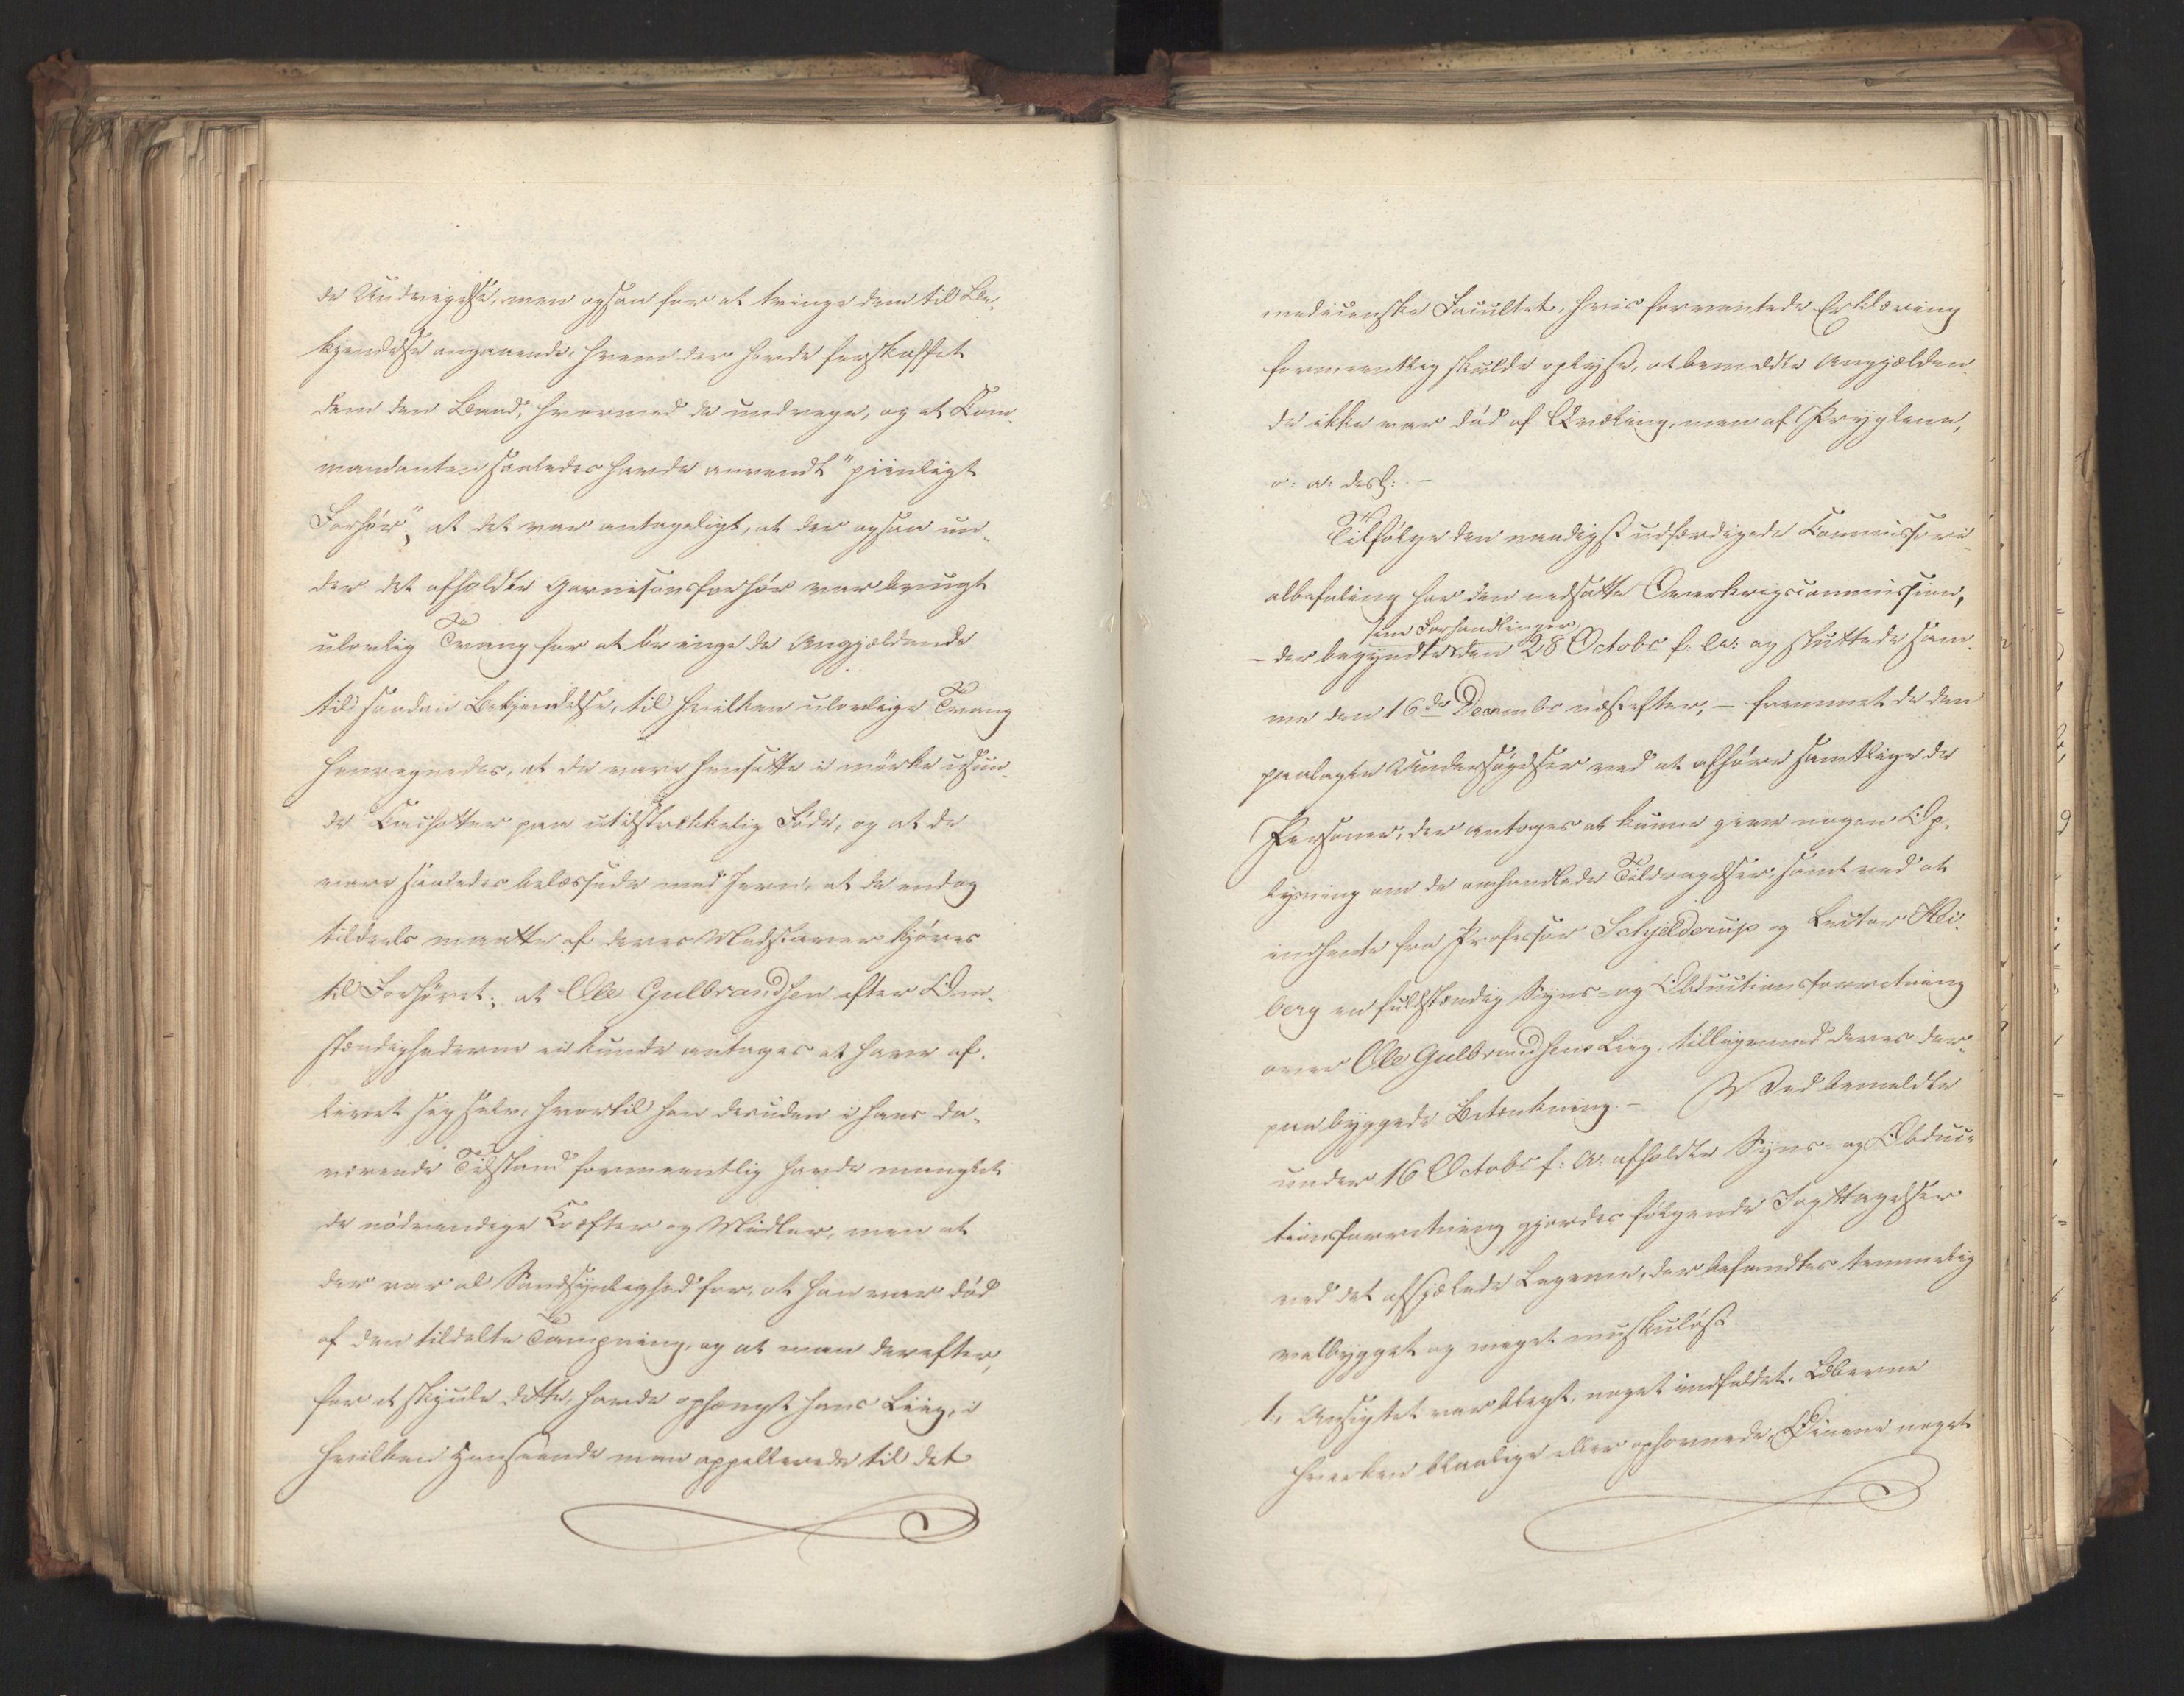 de Undvigelse, men ogsaa for at tvinge dem til Be-
kjendelse angaaende, hvem der havde forskaffet
dem den Baad, hvormed de undvege, og at Com-
mandanten saaledes havde anvendt "piinligt
Forhør"; at det var antageligt, at der ogsaa un-
der det afholdte Garnisonsforhør var brugt
ulovlig Tvang for at bringe de Angjældende
til saadan Bekjendelse, til hvilken ulovlige Tvang
henregnedes, at de vare hensatte i mørke usun-
de Cachotter paa utilstrækkelig Føde, og at de
vare saaledes belæssede med Jern, at de endog
tildeels maatte af deres Medslaver kjøres
til Forhøret; at Ole Gulbrandsen efter Om-
stændighederne ei kunde antages at have af-
livet sig selv, hvortil han desuden i hans da-
værende Tilstand formeentlig havde manglet
de nødvendige Kræfter og Midler, men at
der var al Sandsynlighed for, at han var død
af den tildelte Tampning, og at man derefter,
for at skjule dette, havde ophængt hans Liig, i
hvilken Henseende man appellerede til det
medicinske Facultet, hvis forventede Erklæring
formeentlig skulde oplyse, at bemeldte Angjælden-
de ikke var død af Qvæling, men af Pryglene,
o: a: desl: –
Tilfølge den naadigst udfærdigede Commissori-
albefaling har den nedsatte Overkrigscommission,
sine Forhandlinger
– der begyndte den 28 Octobr f: A: og sluttede sam-
me den 16de Decembr næstefter, – fremmet de den
paalagte Undersøgelser ved at afhøre samtlige de
Personer, der antoges at kunne give nogen Op-
lysning om de omhandlede Tildragelser, samt ved at
indhente fra Professor Schjelderup og Lector Hei-
berg en fuldstændig Syns- og Obductionsforretning
over Ole Gulbrandsens Liig, tilligemed deres der-
paa byggede Betænkning. – Ved bemeldte
under 16 Octobr f: A: afholdte Syns- og Obduc-
tionsforretning gjordes følgende Iagttagelser
ved det afsjælede Legeme, der befandtes temmelig
velbygget og meget muskuløst.
1, Ansigtet var blegt, noget indfaldet, Læberne
hverken blaalige eller ophovnede, Øinene noget